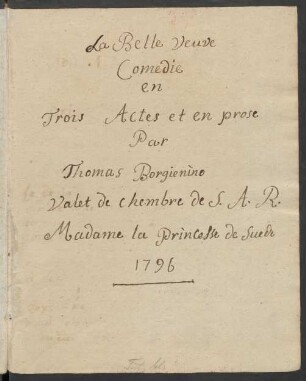 La Belle Veuve
Comedie
en
Trois Actes et en prose
Par
Thomas Borgienino
Valet de Chembre de S. A. R.
Madame la Princesse de Suede
1796